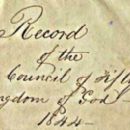 Record
of the
Council of Fift
ngdom of God
1844